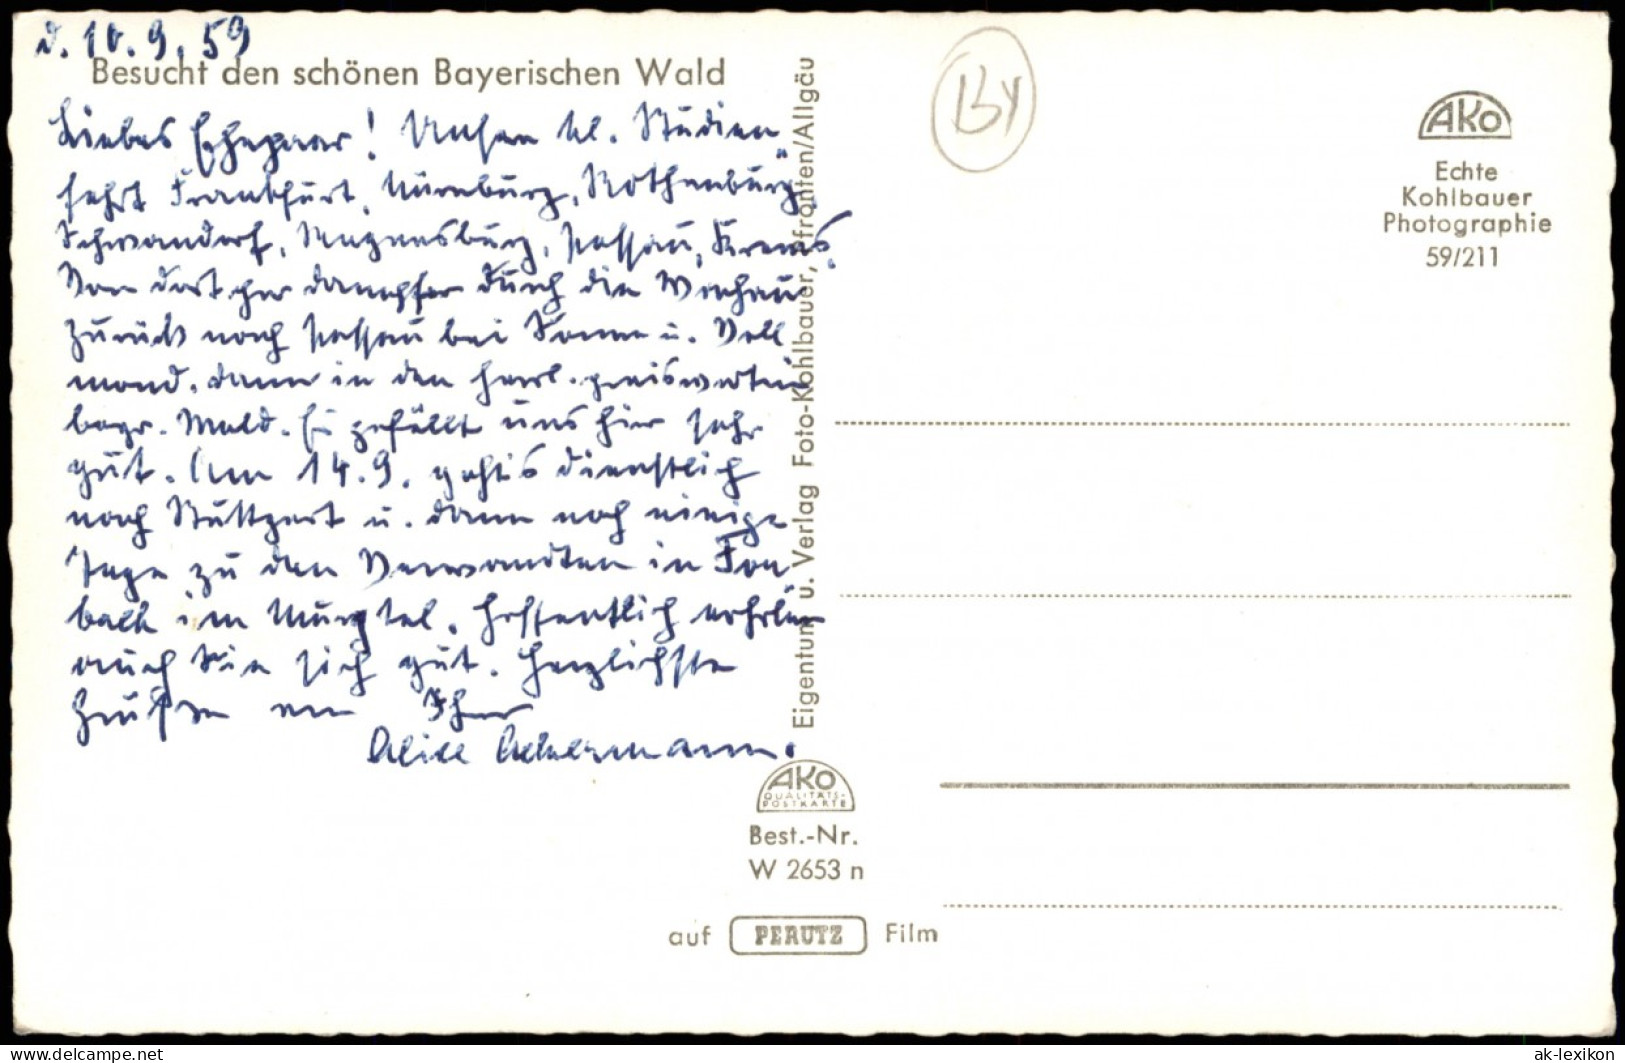 d. 10.9.59
Besucht den schönen Bayerischen Wald
Liebes Ehepaar! Unsere kl. Studien-
fahrt Frankfurt, Nürnburg, Rothenburg,
Schwandorf, Regensburg, Passau, Krems.
Von dort per Dampfer durch die Wachau
zurück nach Passau bei Sonne u. Voll
mond, dann in den herrl. preiswerten
bayr. Wald. Es gefällt uns hier sehr
gut. Am 14.9. geht's dienstlich
nach Stuttgart u. dann noch einige
Tage zu den Verwandten in For-
bach im Murgtal. Hoffentlich erholen
auch Sie sich gut. Herzlichste
Grüße von Ihrer
Alice Ackermann.
Eigentum u. Verlag Foto-Kohlbauer, Pfronten/Allgäu
AKO
QUALITÄTS-
POSTKARTE
Best.-Nr.
W 2653 n
auf PERUTZ Film
BY
AKO
Echte
Kohlbauer
Photographie
59/211
www.delcampe.net
ak-lexikon